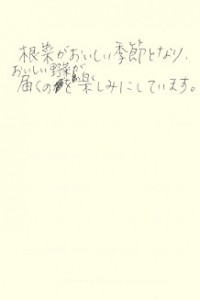 根菜がおいしい季節となり、
おいしい野菜が
届くのを楽しみにしています。